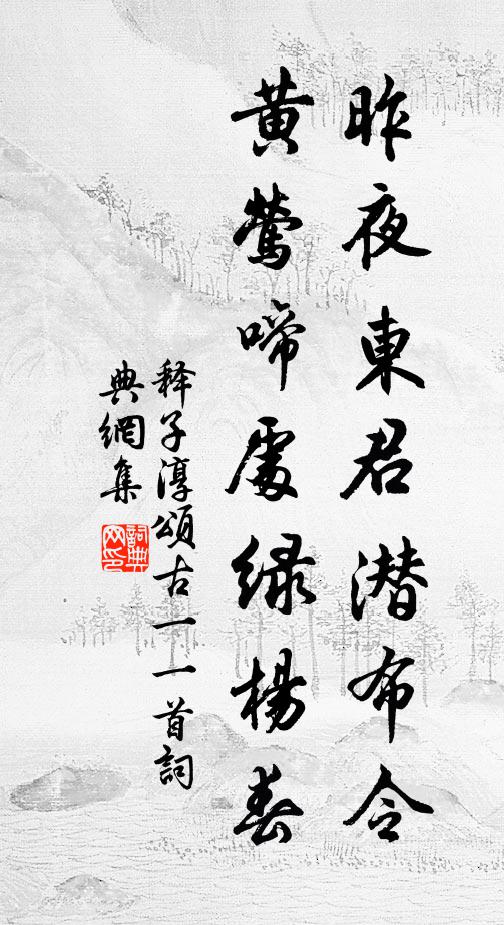 昨夜東君潜布令
黄鶯啼處緑楊春
释子淳頌古一一首詞
典網集
詞典
网印